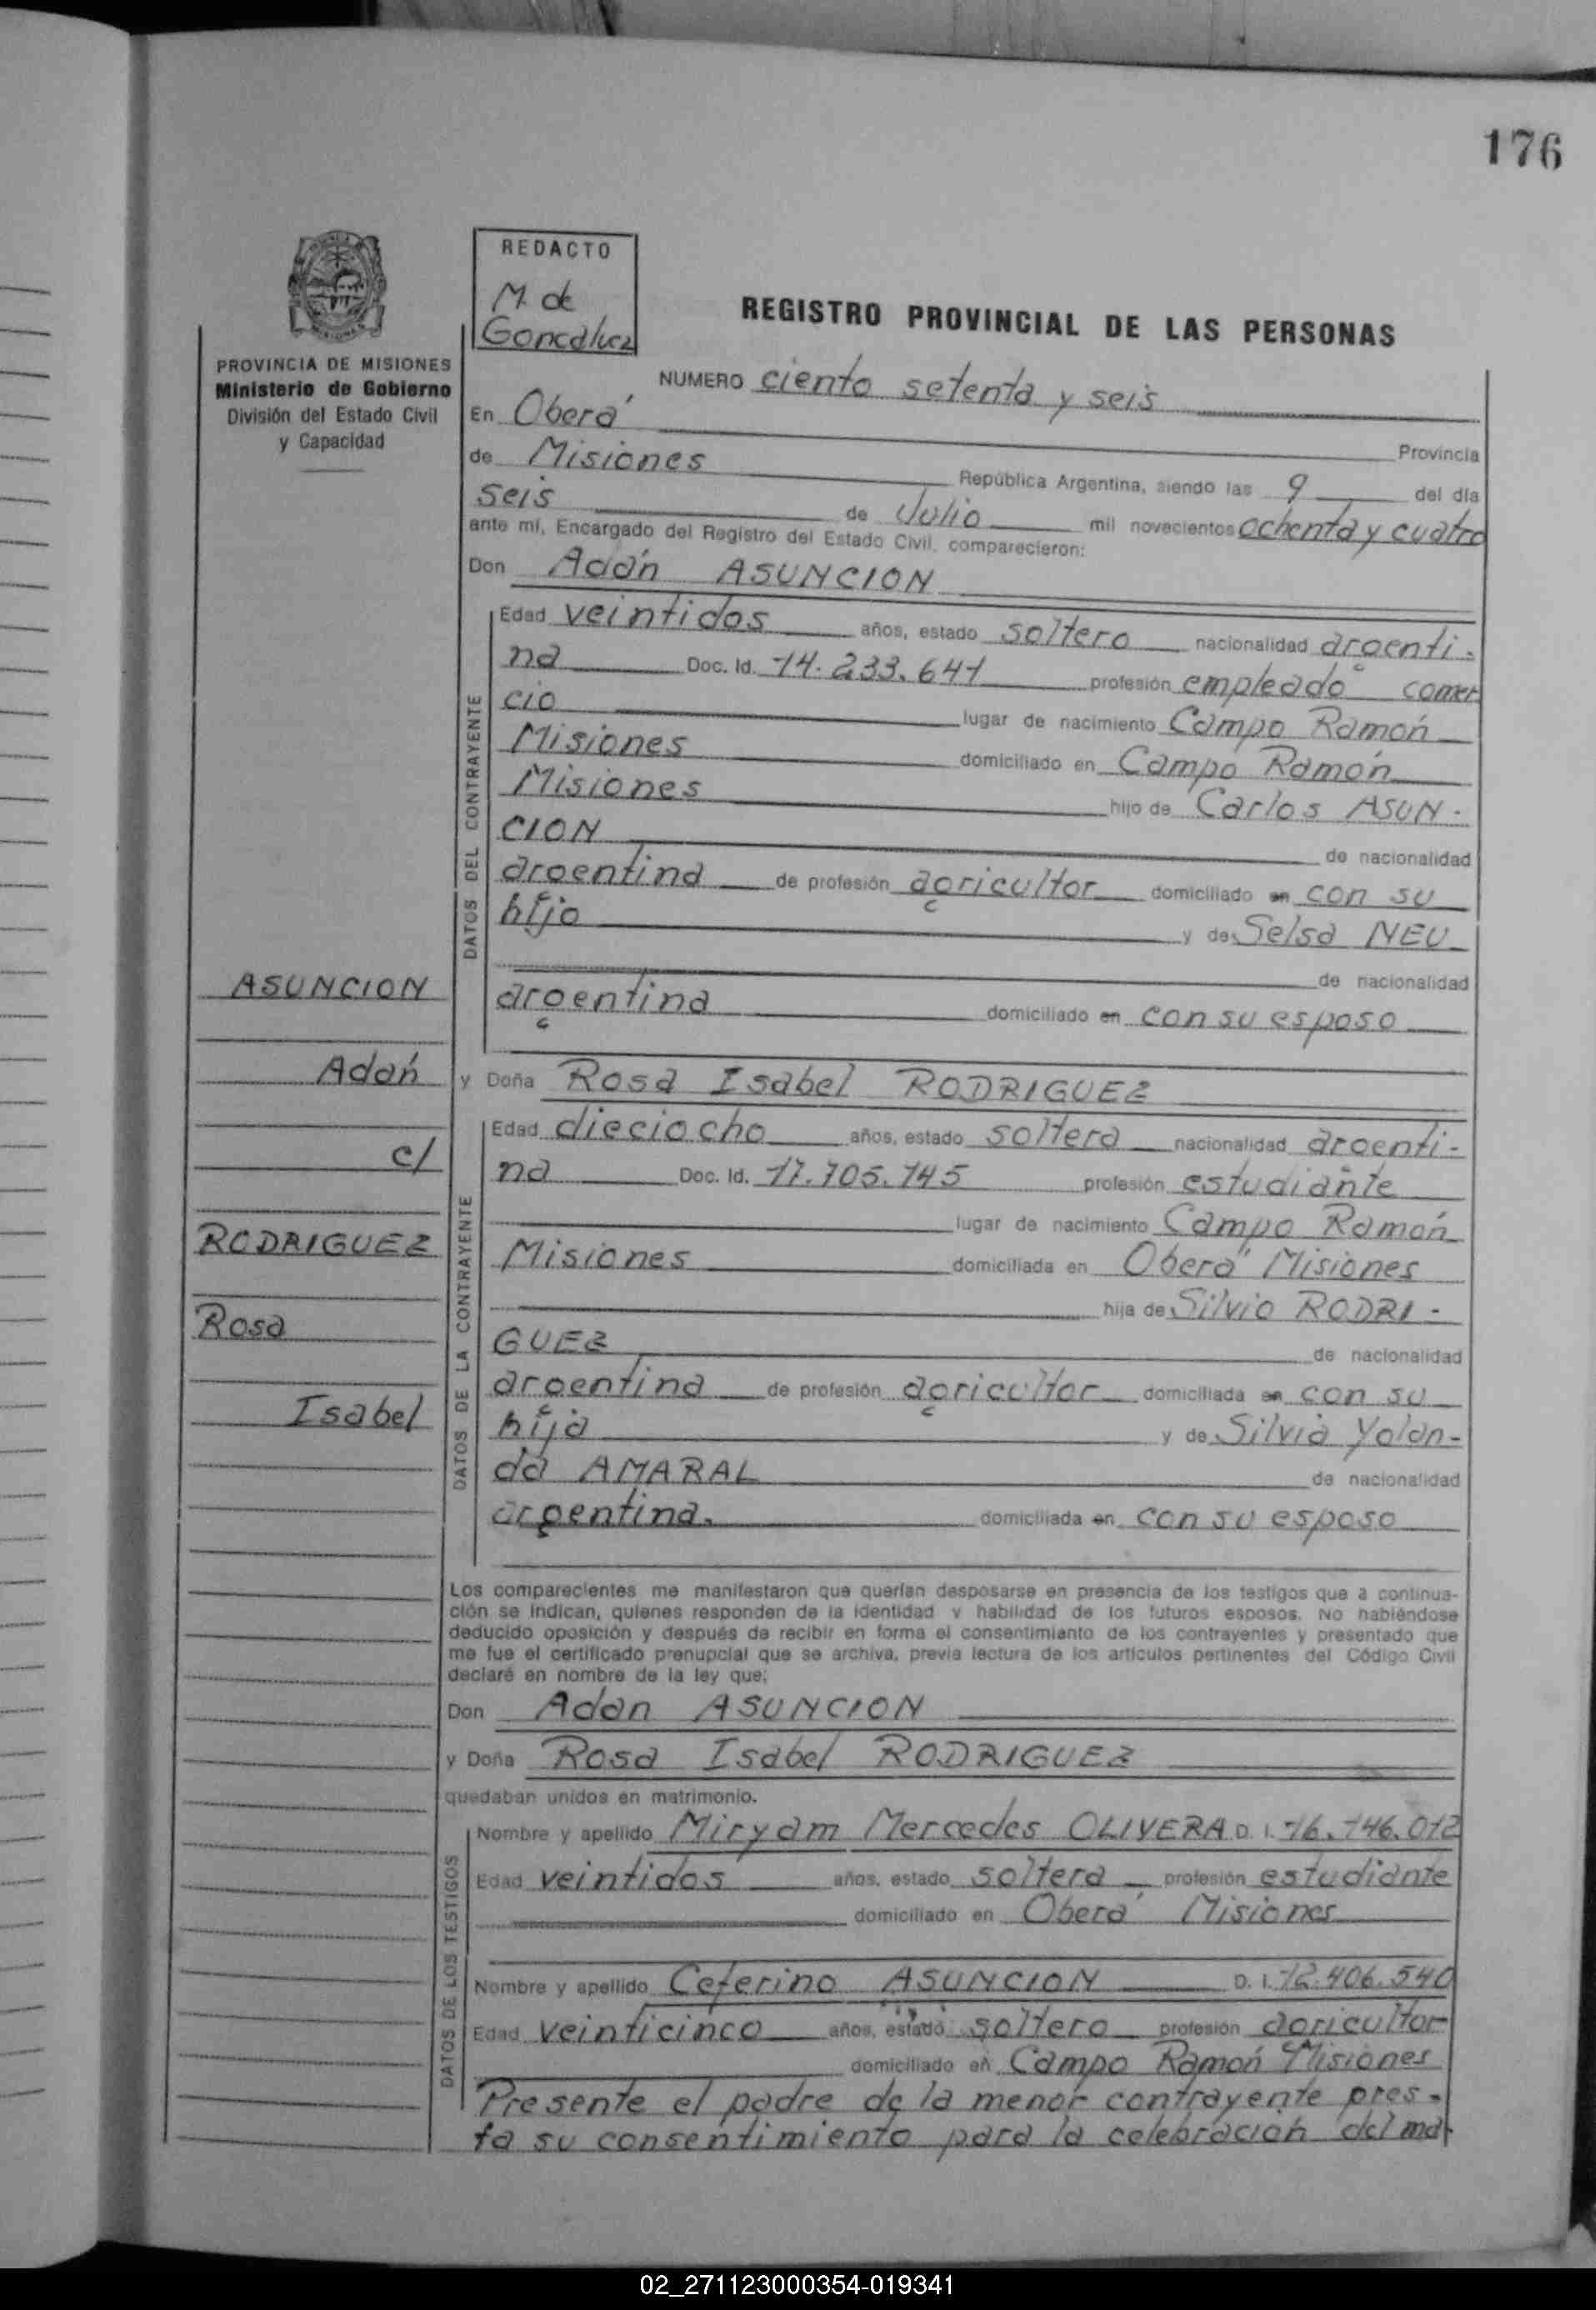 176
REDACTO
M. de
Goncalvez
REGISTRO PROVINCIAL DE LAS PERSONAS
PROVINCIA DE MISIONES
Ministerio de Gobierno
División del Estado Civil
y Capacidad
NUMERO ciento setenta y seis
En Oberá Provincia
de Misiones República Argentina, siendo las 9 del día
seis de Julio mil novecientos ochenta y cuatro
ante mí, Encargado del Registro del Estado Civil, comparecieron:
Don Adán ASUNCION
DATOS DEL CONTRAYENTE
Edad veintidos años, estado soltero nacionalidad argenti-
na Doc. Id. 14.233.641 profesión empleado comer
cio lugar de nacimiento Campo Ramón
Misiones domiciliado en Campo Ramón
Misiones hijo de Carlos ASUN-
CION de nacionalidad
argentina de profesión agricultor domiciliado en con su
hijo y de Selsa NEU
de nacionalidad
argentina domiciliado en con su esposo
ASUNCION
Adán
c/
RODRIGUEZ
Rosa
Isabel
y Doña Rosa Isabel RODRIGUEZ
DATOS DE LA CONTRAYENTE
Edad dieciocho años, estado soltera nacionalidad argenti-
na Doc. Id. 17.105.145 profesión estudiante
lugar de nacimiento Campo Ramón
Misiones domiciliada en Oberá Misiones
hija de Silvio RODRI-
GUEZ de nacionalidad
argentina de profesión agricultor domiciliada en con su
hija y de Silvia Yolan-
da AMARAL de nacionalidad
argentina. domiciliada en con su esposo
Los comparecientes me manifestaron que querían desposarse en presencia de los testigos que a continua-
ción se indican, quienes responden de la identidad y habilidad de los futuros esposos. No habiéndose
deducido oposición y después de recibir en forma el consentimiento de los contrayentes y presentado que
me fue el certificado prenupcial que se archiva, previa lectura de los artículos pertinentes del Código Civil
declaré en nombre de la ley que:
Don Adan ASUNCION
y Doña Rosa Isabel RODRIGUEZ
quedaban unidos en matrimonio.
DATOS DE LOS TESTIGOS
Nombre y apellido Miryam Mercedes OLIVERA D. I. 16.146.012
Edad veintidos años, estado soltera profesión estudiante
domiciliado en Oberá Misiones
Nombre y apellido Ceferino ASUNCION D. I. 12.406.540
Edad veinticinco años, estado soltero profesión agricultor
domiciliado en Campo Ramón Misiones
Presente el padre de la menor contrayente pres-
ta su consentimiento para la celebración del mat
02_271123000354-019341